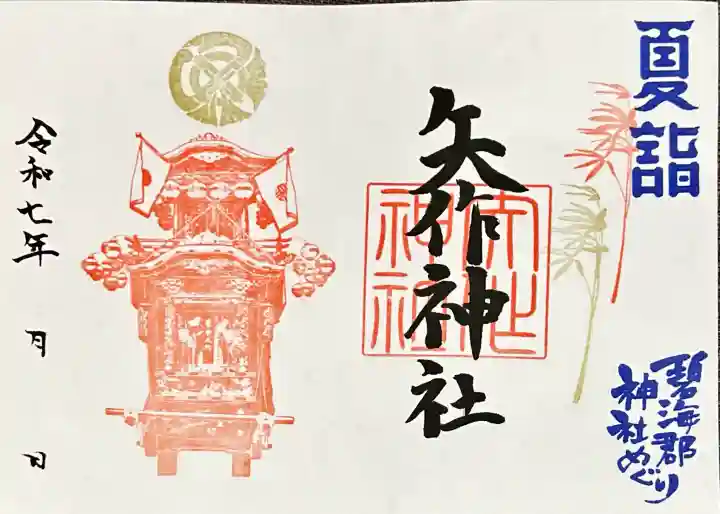 夏詣
碧海郡
神社めぐり
矢作神社
矢作
神社
令和七年 月 日